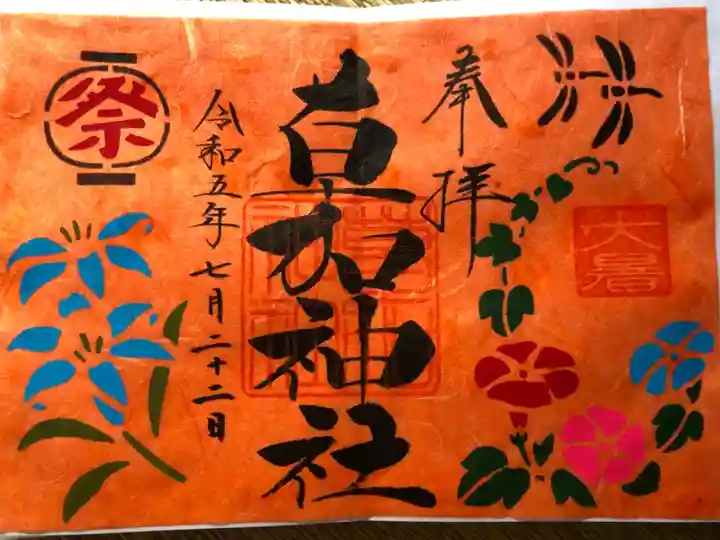 奉拝
大暑
草加神社
令和五年七月二十二日
祭